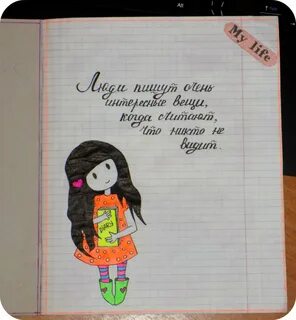 My life
Люди пишут очень
интересные вещи,
когда считают,
что никто не
видит.
DIARY